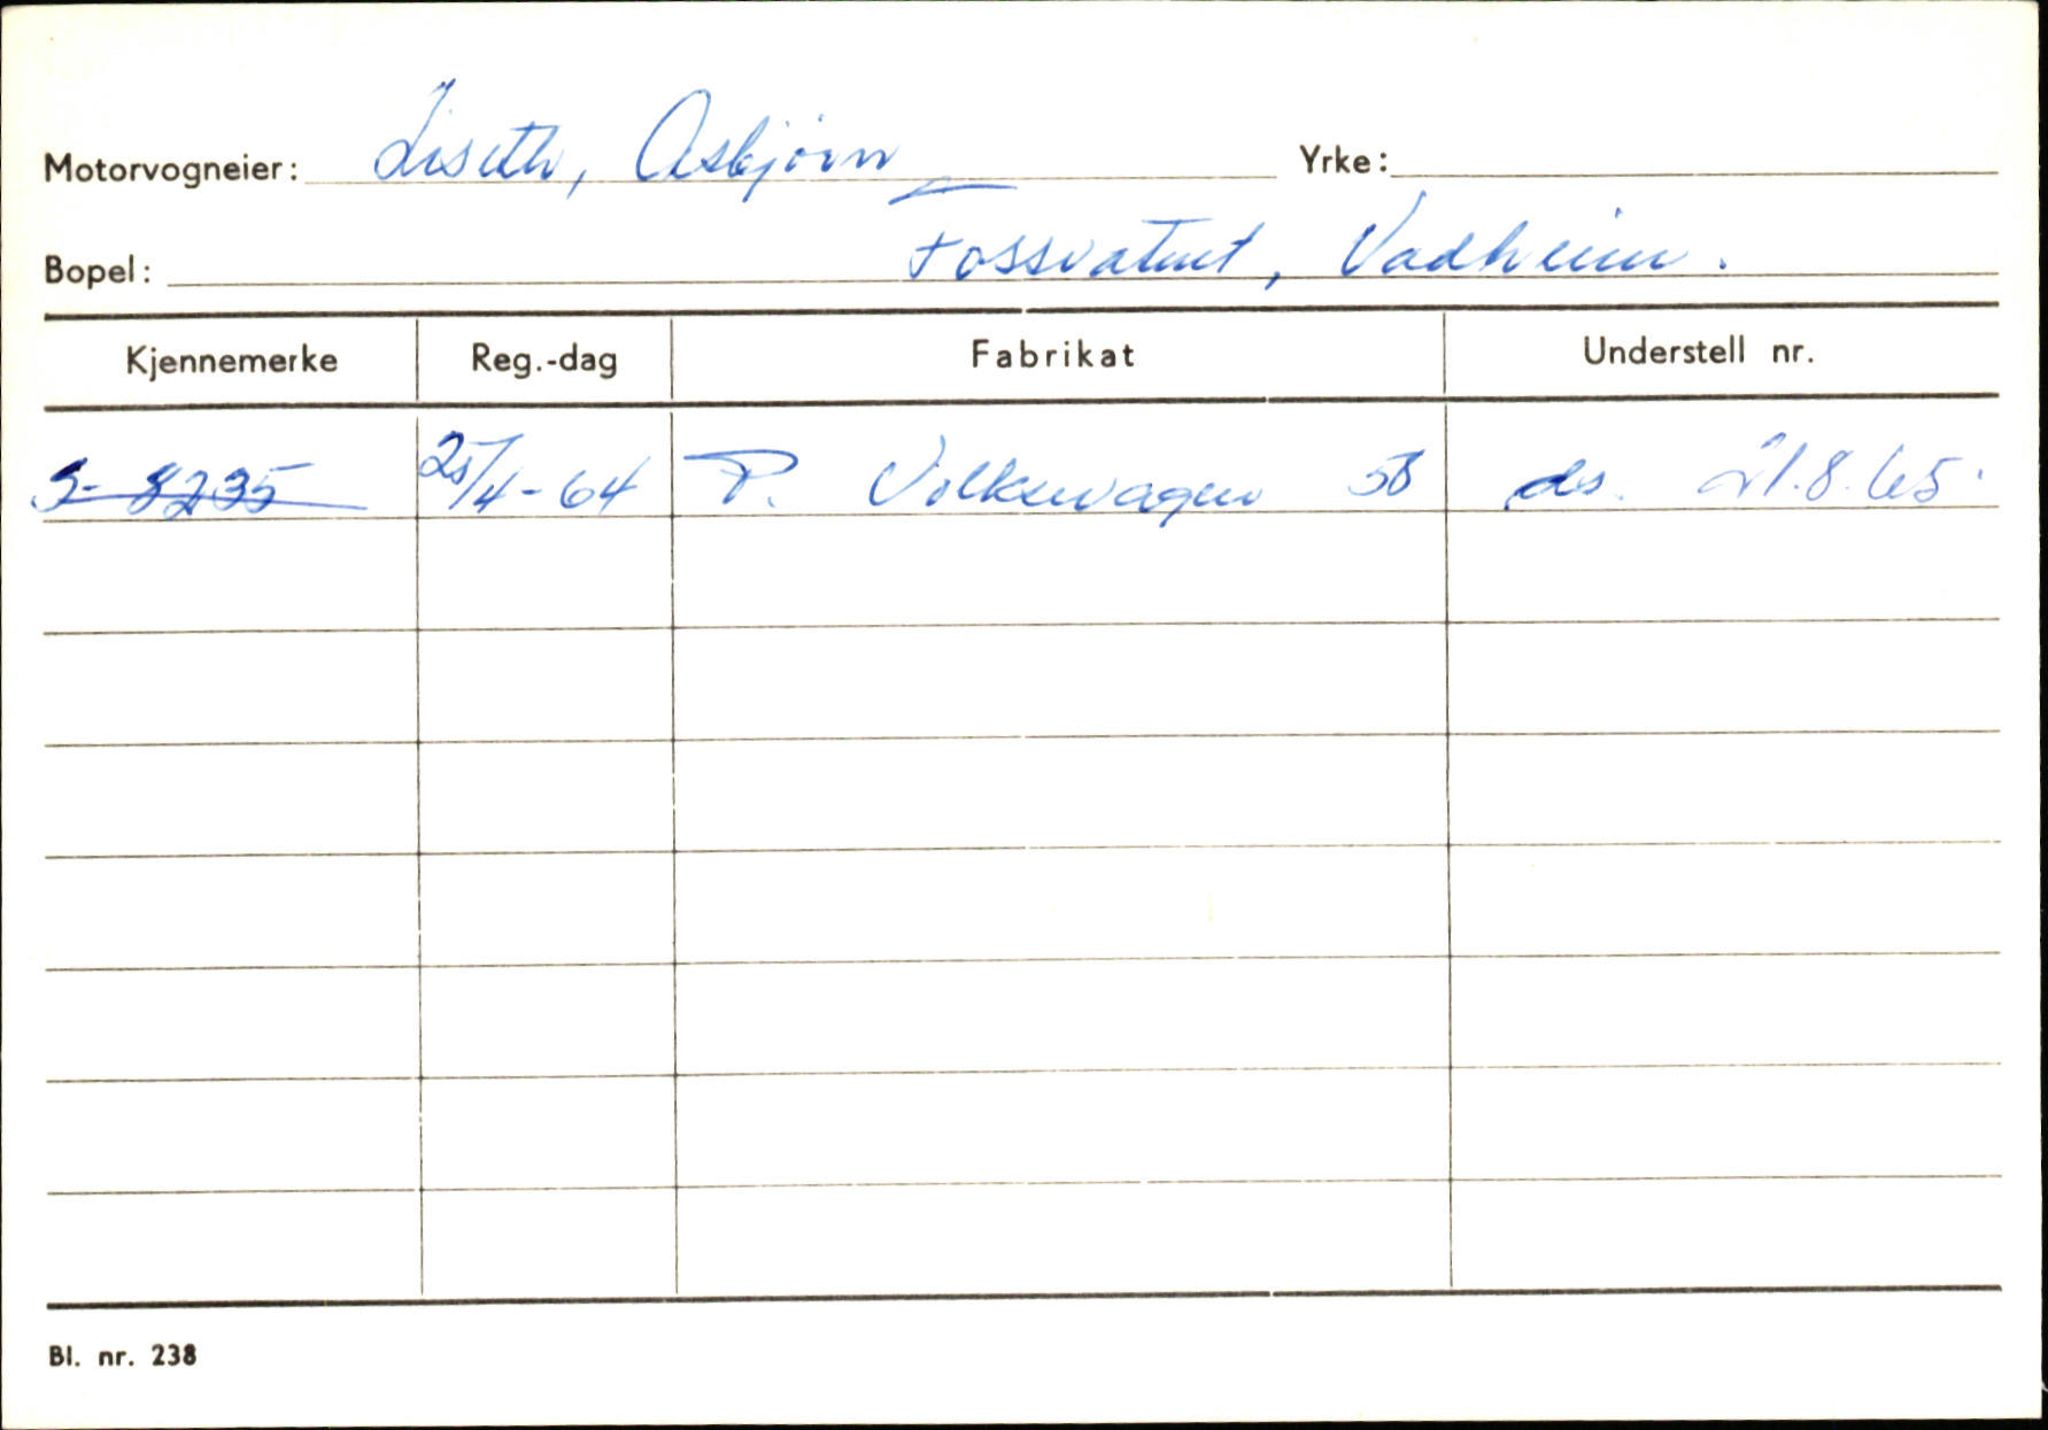 Motorvogneier: Liseth, Asbjørn Yrke:
Bopel: Fossvatnet, Vadheim.
Kjennemerke Reg.-dag Fabrikat Understell nr.
S- 8235 25/4-64 P. Volkswagen 58 ds. 21.8.65.
Bl. nr. 238